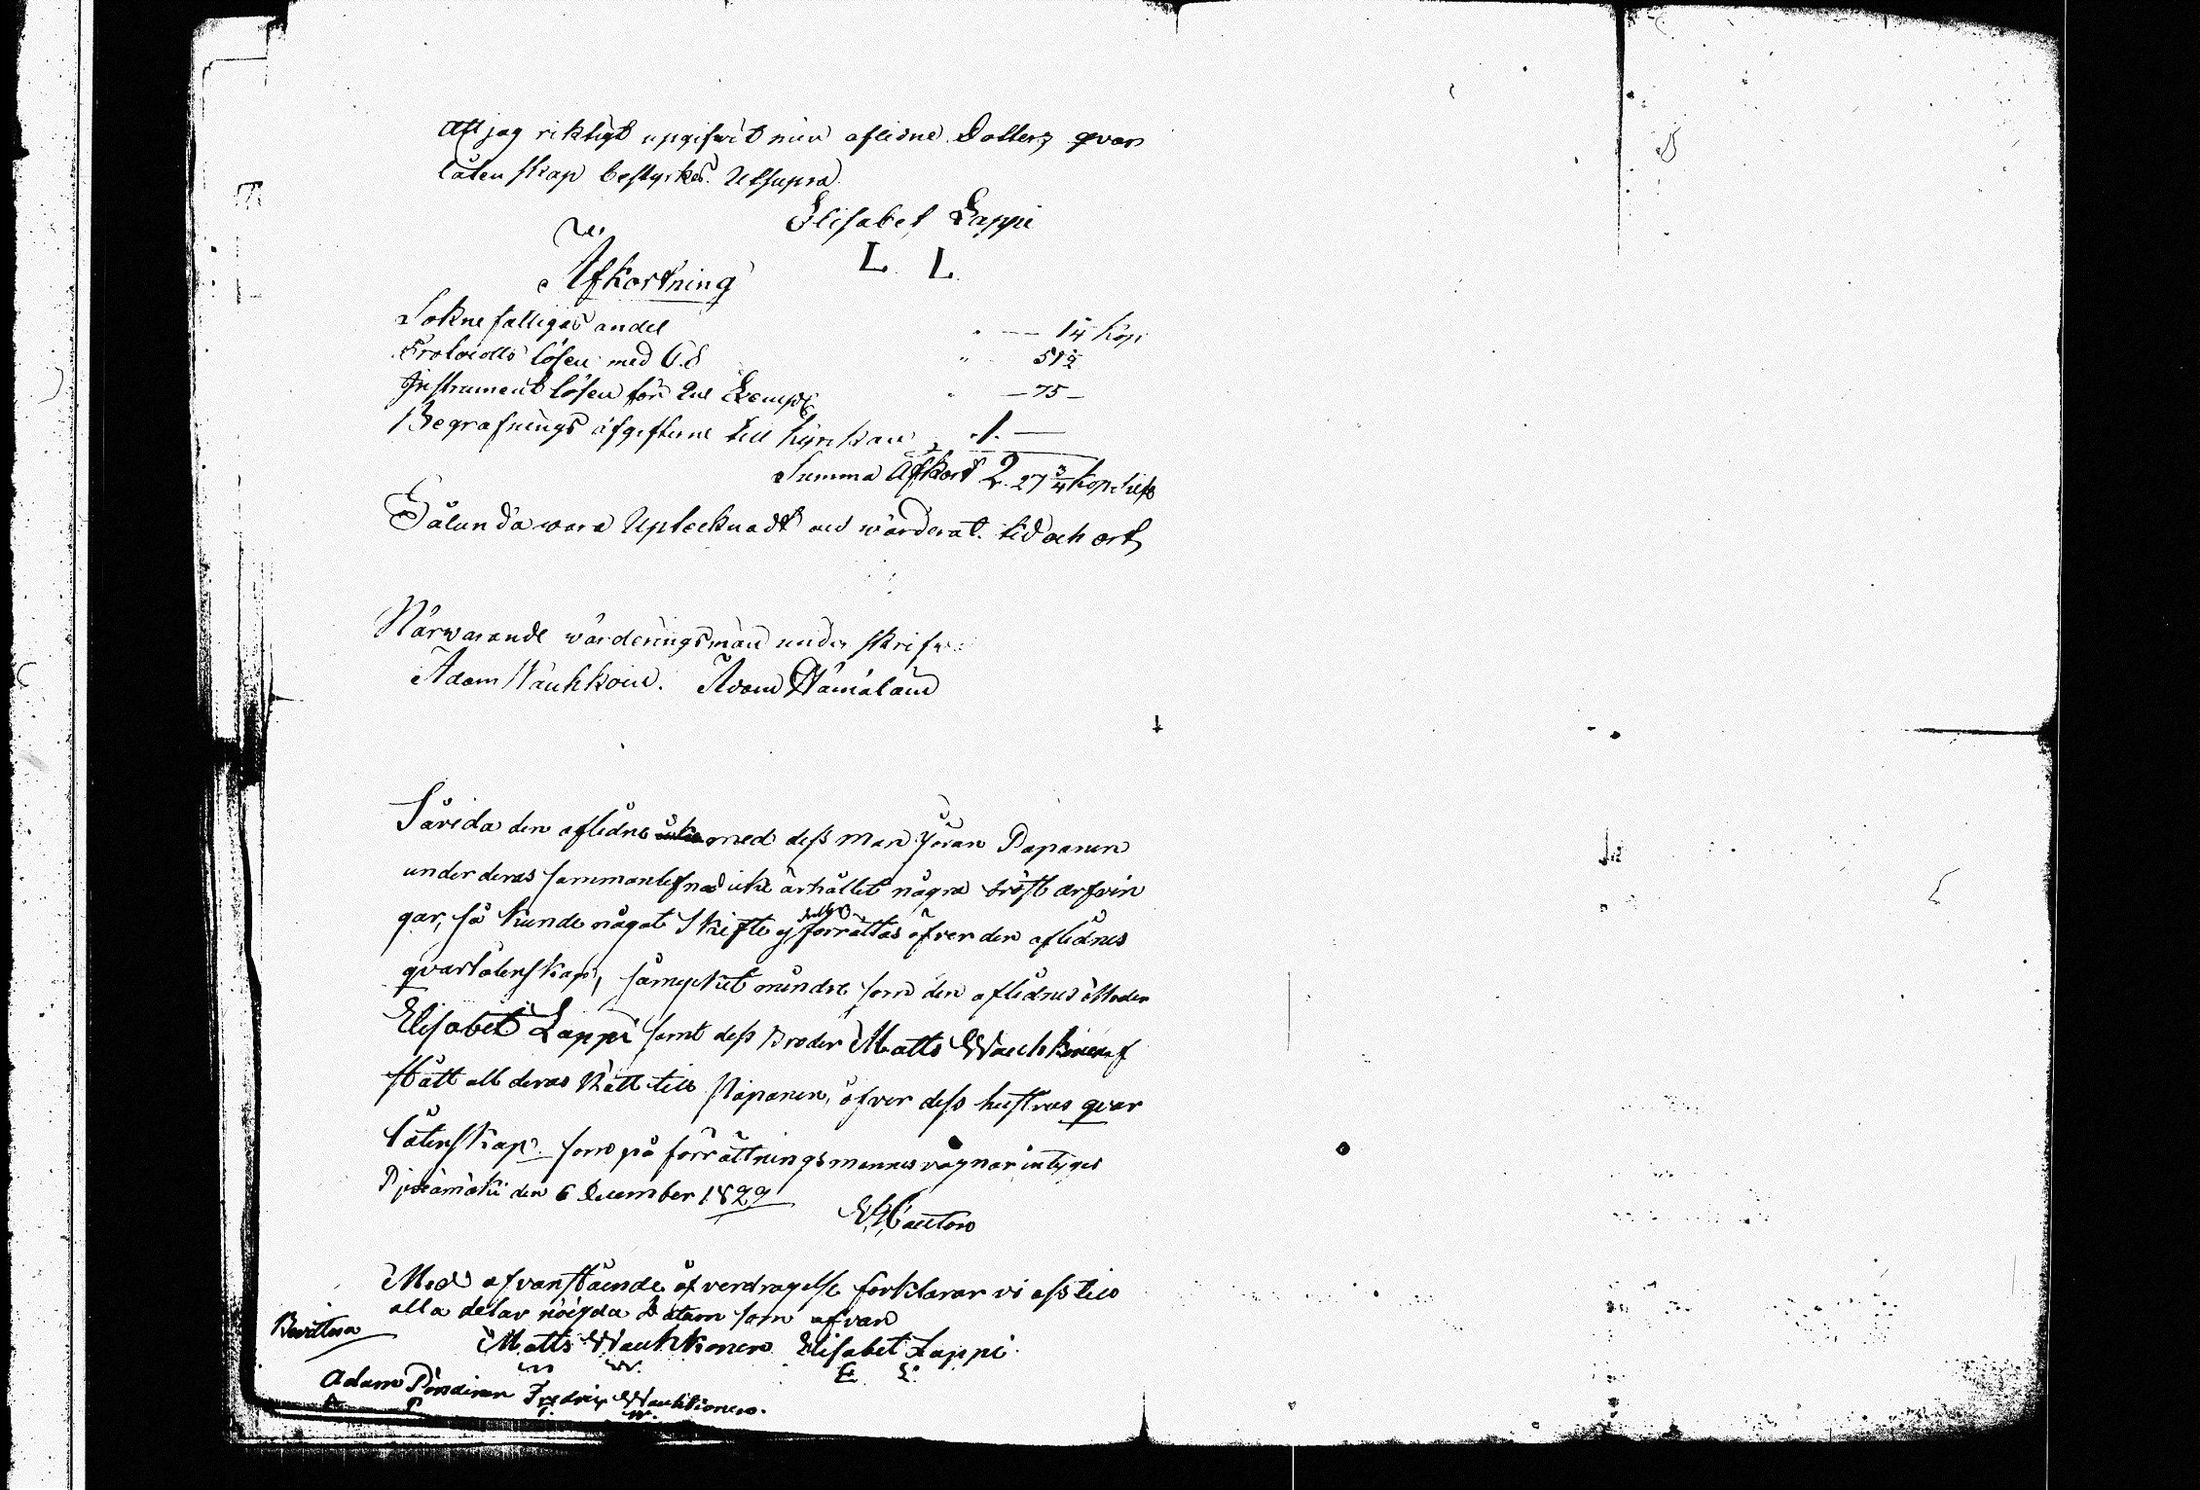 Att jag riktigt upgifwit min aflidne Dotters qvar
låtenskap bestyrkes. Utsupra.
Elisabet Lappi
L L
Afkortning
Soknefattigas andel " — 1 1/4 kop:
Protocolls lösen med C.S " 51 1/2
Instrument lösen för 2ne Exempl " — 75 —
Begrafnings afgifterne till kyrkan " 1. —
Summa Afkort 2. 27 3/4 kop. Silf
Sålunda wara Uptecknadt och wärderat. tid och ort
Närwarande wärderingsmän underskrifw
Adam Wauhkoin. Adam Hämäläin
Såvida den aflidne med dess man Jöran Paparen
under deras sammanlefnad icke ärhållet några bröst arfvin
gar, så kunde någat Skifte ej förrättas öfver den aflidnes
qvarlåtenskap, såmycket mindre som den aflidnes Moder
Elisabet Lappi samt dess Broder Matts Wauhkonen af
stått all deras Rätt till Paponen, öfver dess hustrus qvar
låtenskap. som på förrättningsmannes vägnar intyges
den 6 December 1829
Med ofvanstående öfverdragelse förklarar vi oss till
alla delar nöigda Datum som ofvan
Matts Wauhkonen Elisabet Lappi
M W. E L.
Bevittna
Adam Fredrix Wauhkonen.
A P F. W.